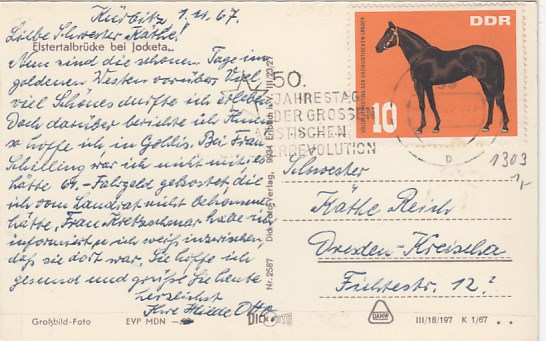 Kürbitz, 1.11.67.
Liebe Schwester Käthe!
Elstertalbrücke bei Jocketa
Nun sind die schönen Tage im
goldenen Westen vorüber. Viel,
viel Schönes durfte ich erleben.
Doch darüber berichte ich Ihnen
so hoffe ich, in Gohlis. Bei Frau
Schilling war ich nicht mit, es
hätte 64,- Fahrgeld gekostet, die
ich vom Landrat nicht bekommen
hätte. Frau Kretzschmar habe ich
informiert, ich weiß inzwischen,
daß sie dort war. Sie hoffe ich
gesund und grüße Sie heute
herzlichst
Ihre Hilde Otto.
Großbild-Foto EVP MDN
Nr. 2587 Dick-Foto-Verlag, 9934 Erlbach III/23/21
50.
JAHRESTAG
DER GROSSEN
ISTISCHEN
REVOLUTION
DDR
10
1303
1,-
Schwester
Käthe Reich
Dresden-Kreischa
Fichtestr. 12.
DICK FOTO
DAHW
III/18/197 K 1/67